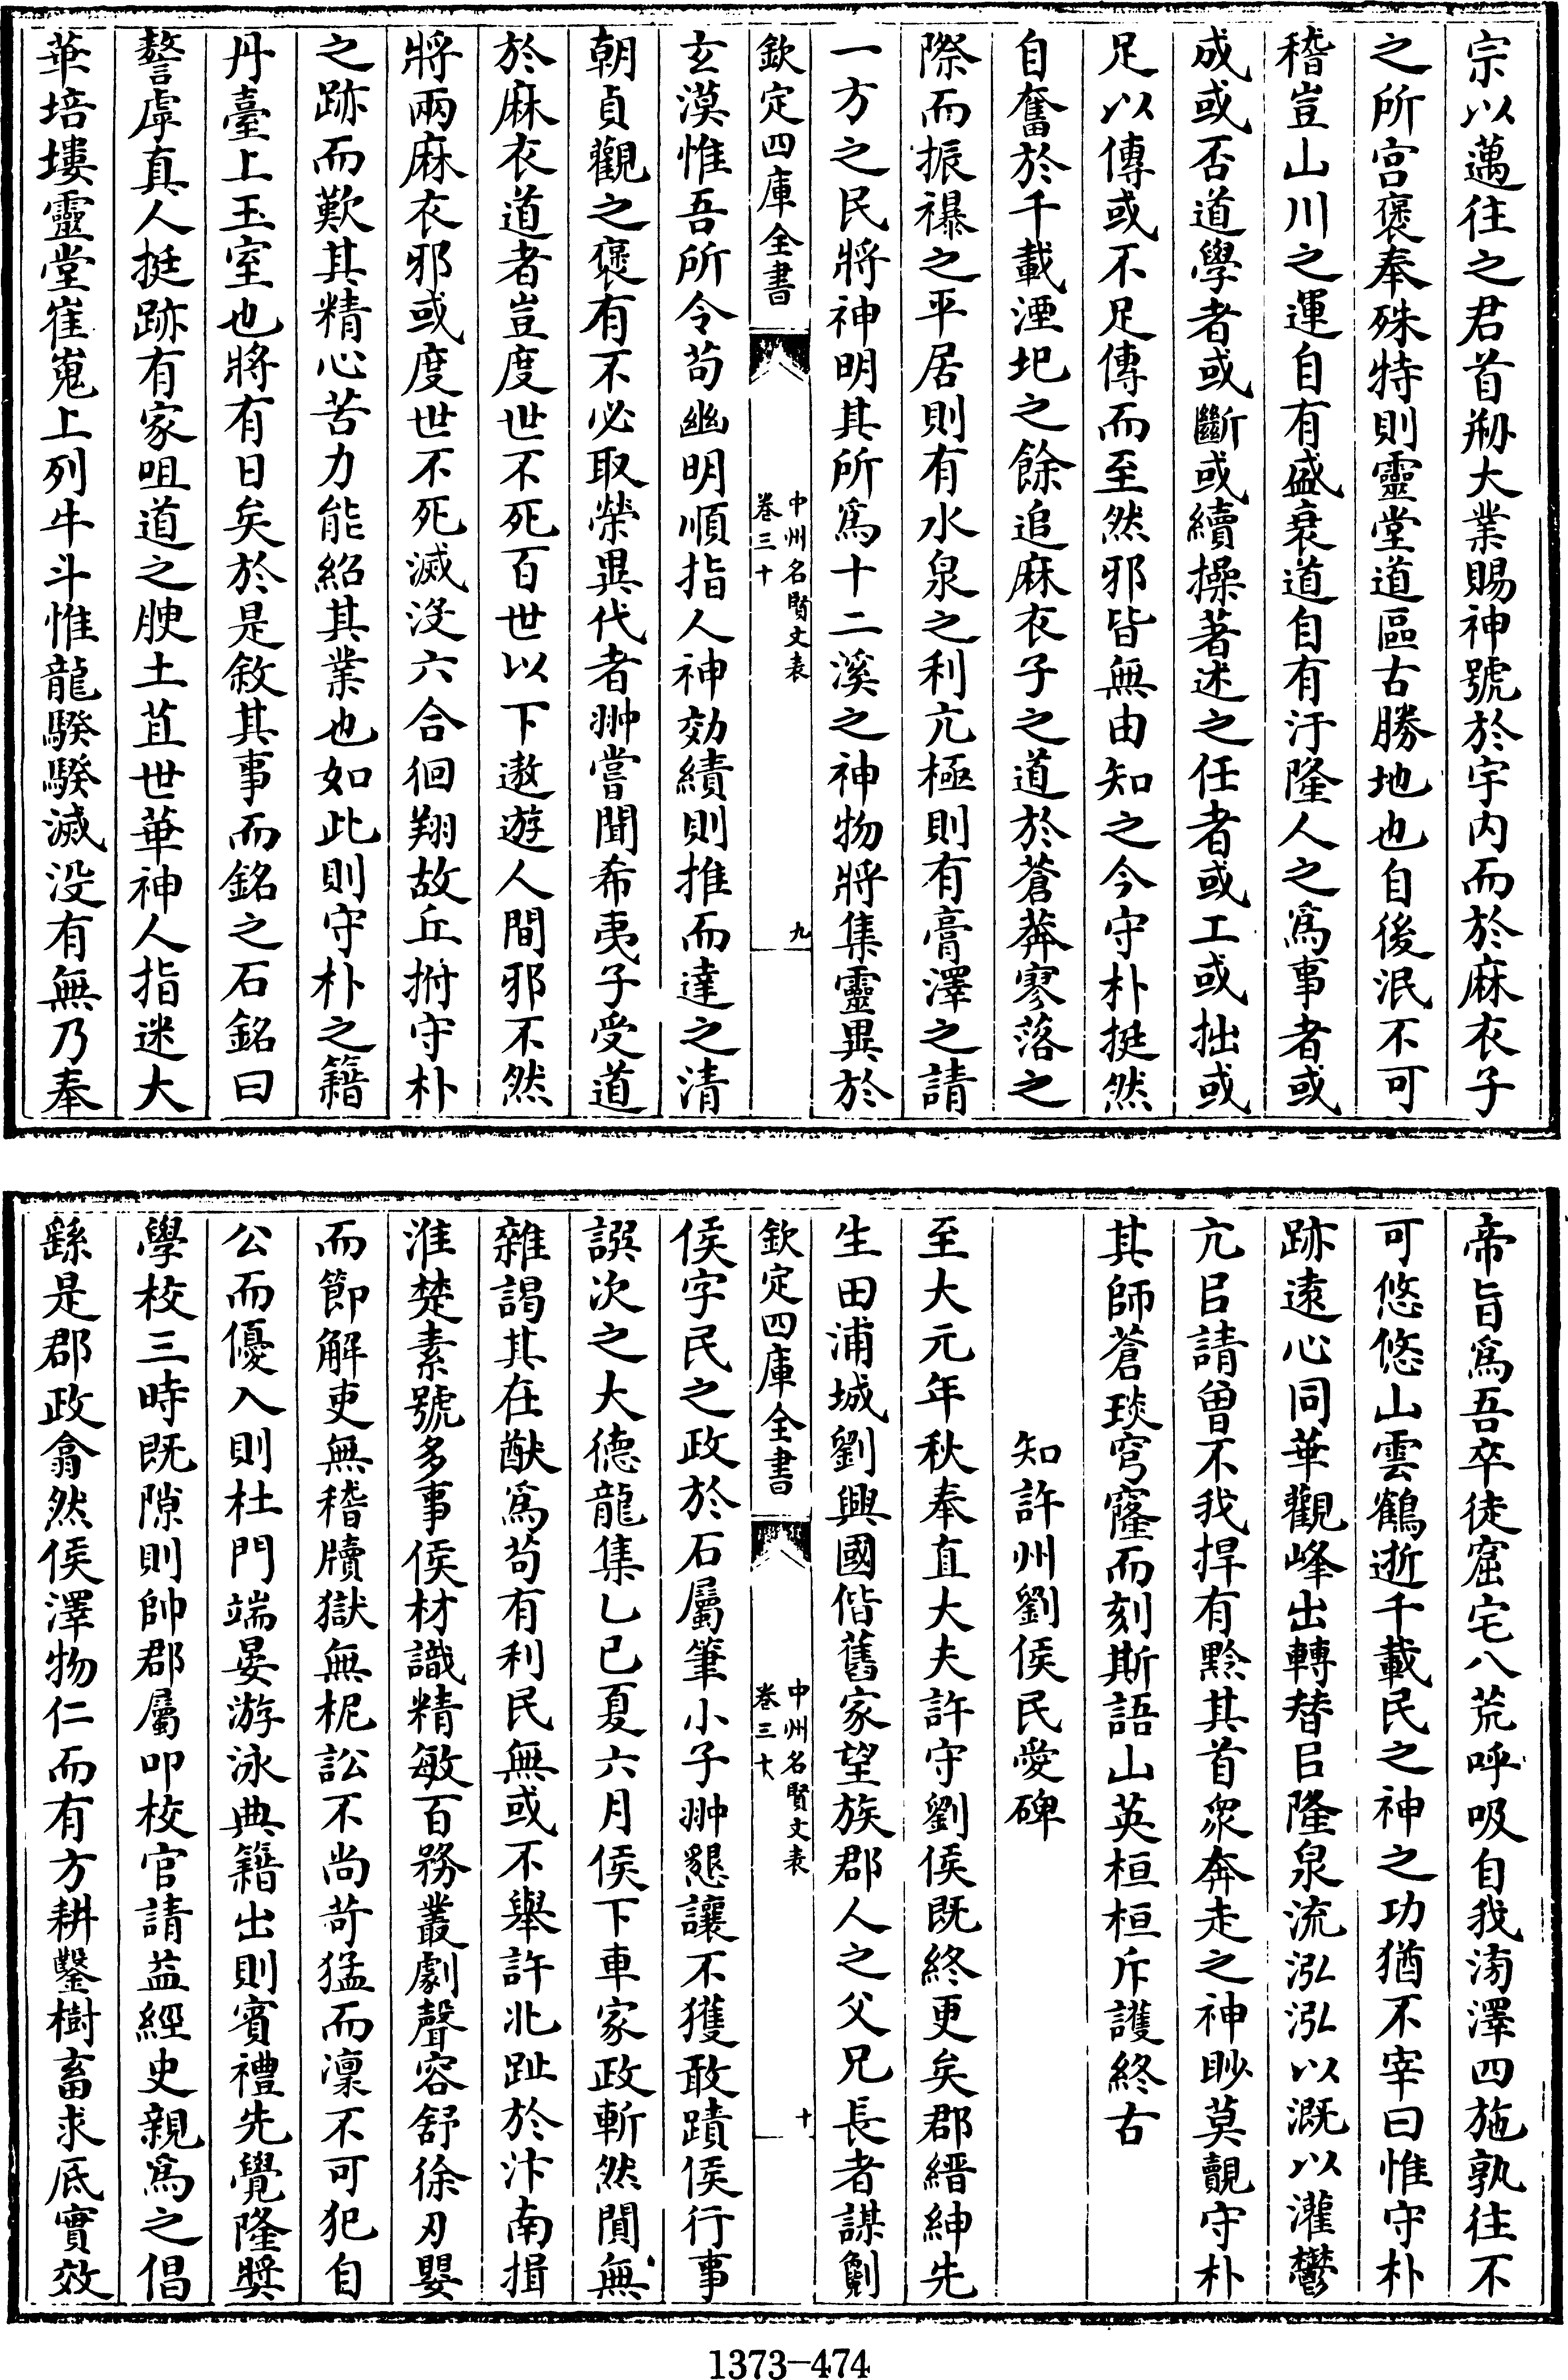 宗以邁往之君首剙大業賜神號於宇内而於麻衣子
之所宫褒奉殊特則靈堂道區古勝地也自後泯不可
稽豈山川之運自有盛衰道自有汙隆人之為事者或
成或否道學者或斷或續操著述之任者或工或拙或
足以傳或不足傳而至然邪皆無由知之今守朴挺然
自奮於千載湮圯之餘追麻衣子之道於蒼莽寥落之
際而振襮之平居則有水泉之利亢極則有膏澤之請
一方之民將神明其所為十二溪之神物將集靈異於
欽定四庫全書
中州名賢文表
卷三十
九
玄漠惟吾所令苟幽明順指人神効績則推而達之清
朝貞觀之褒有不必取榮異代者翀嘗聞希夷子受道
於麻衣道者豈度世不死百世以下遨遊人間邪不然
將兩麻衣邪或度世不死滅没六合徊翔故丘拊守朴
之跡而歎其精心苦力能紹其業也如此則守朴之籍
丹臺上玉室也將有日矣於是敘其事而銘之石銘曰
謷虖真人挺跡有家咀道之腴土苴世華神人指迷大
華培塿靈堂崔嵬上列牛斗惟龍騤騤滅没有無乃奉
帝旨為吾卒徒窟宅八荒呼吸自我滂澤四施孰往不
可悠悠山雲鶴逝千載民之神之功猶不宰曰惟守朴
跡遠心同華觀峰出轉替㠯隆泉流泓泓以溉以灌鬱
亢㠯請曾不我捍有黔其首衆奔走之神眇莫覿守朴
其師蒼琰穹窿而刻斯語山英桓桓斥護終古
知許州劉侯民愛碑
至大元年秋奉直大夫許守劉侯既終更矣郡縉紳先
生田浦城劉興國偕舊家望族郡人之父兄長者謀劖
欽定四庫全書
中州名賢文表
卷三十
十
侯字民之政於石屬筆小子翀懇讓不獲敢蹟侯行事
譔次之大德龍集乙巳夏六月侯下車家政斬然閴無
雜謁其在猷為苟有利民無或不舉許北趾於汴南揖
淮楚素號多事侯材識精敏百務叢劇聲容舒徐刃嬰
而節解吏無稽牘獄無柅訟不尚苛猛而凜不可犯自
公而優入則杜門端晏游泳典籍出則賓禮先覺隆奬
學校三時既隙則帥郡屬叩校官請益經史親為之倡
繇是郡政翕然侯澤物仁而有方耕鑿樹畜求底實效
1373-474